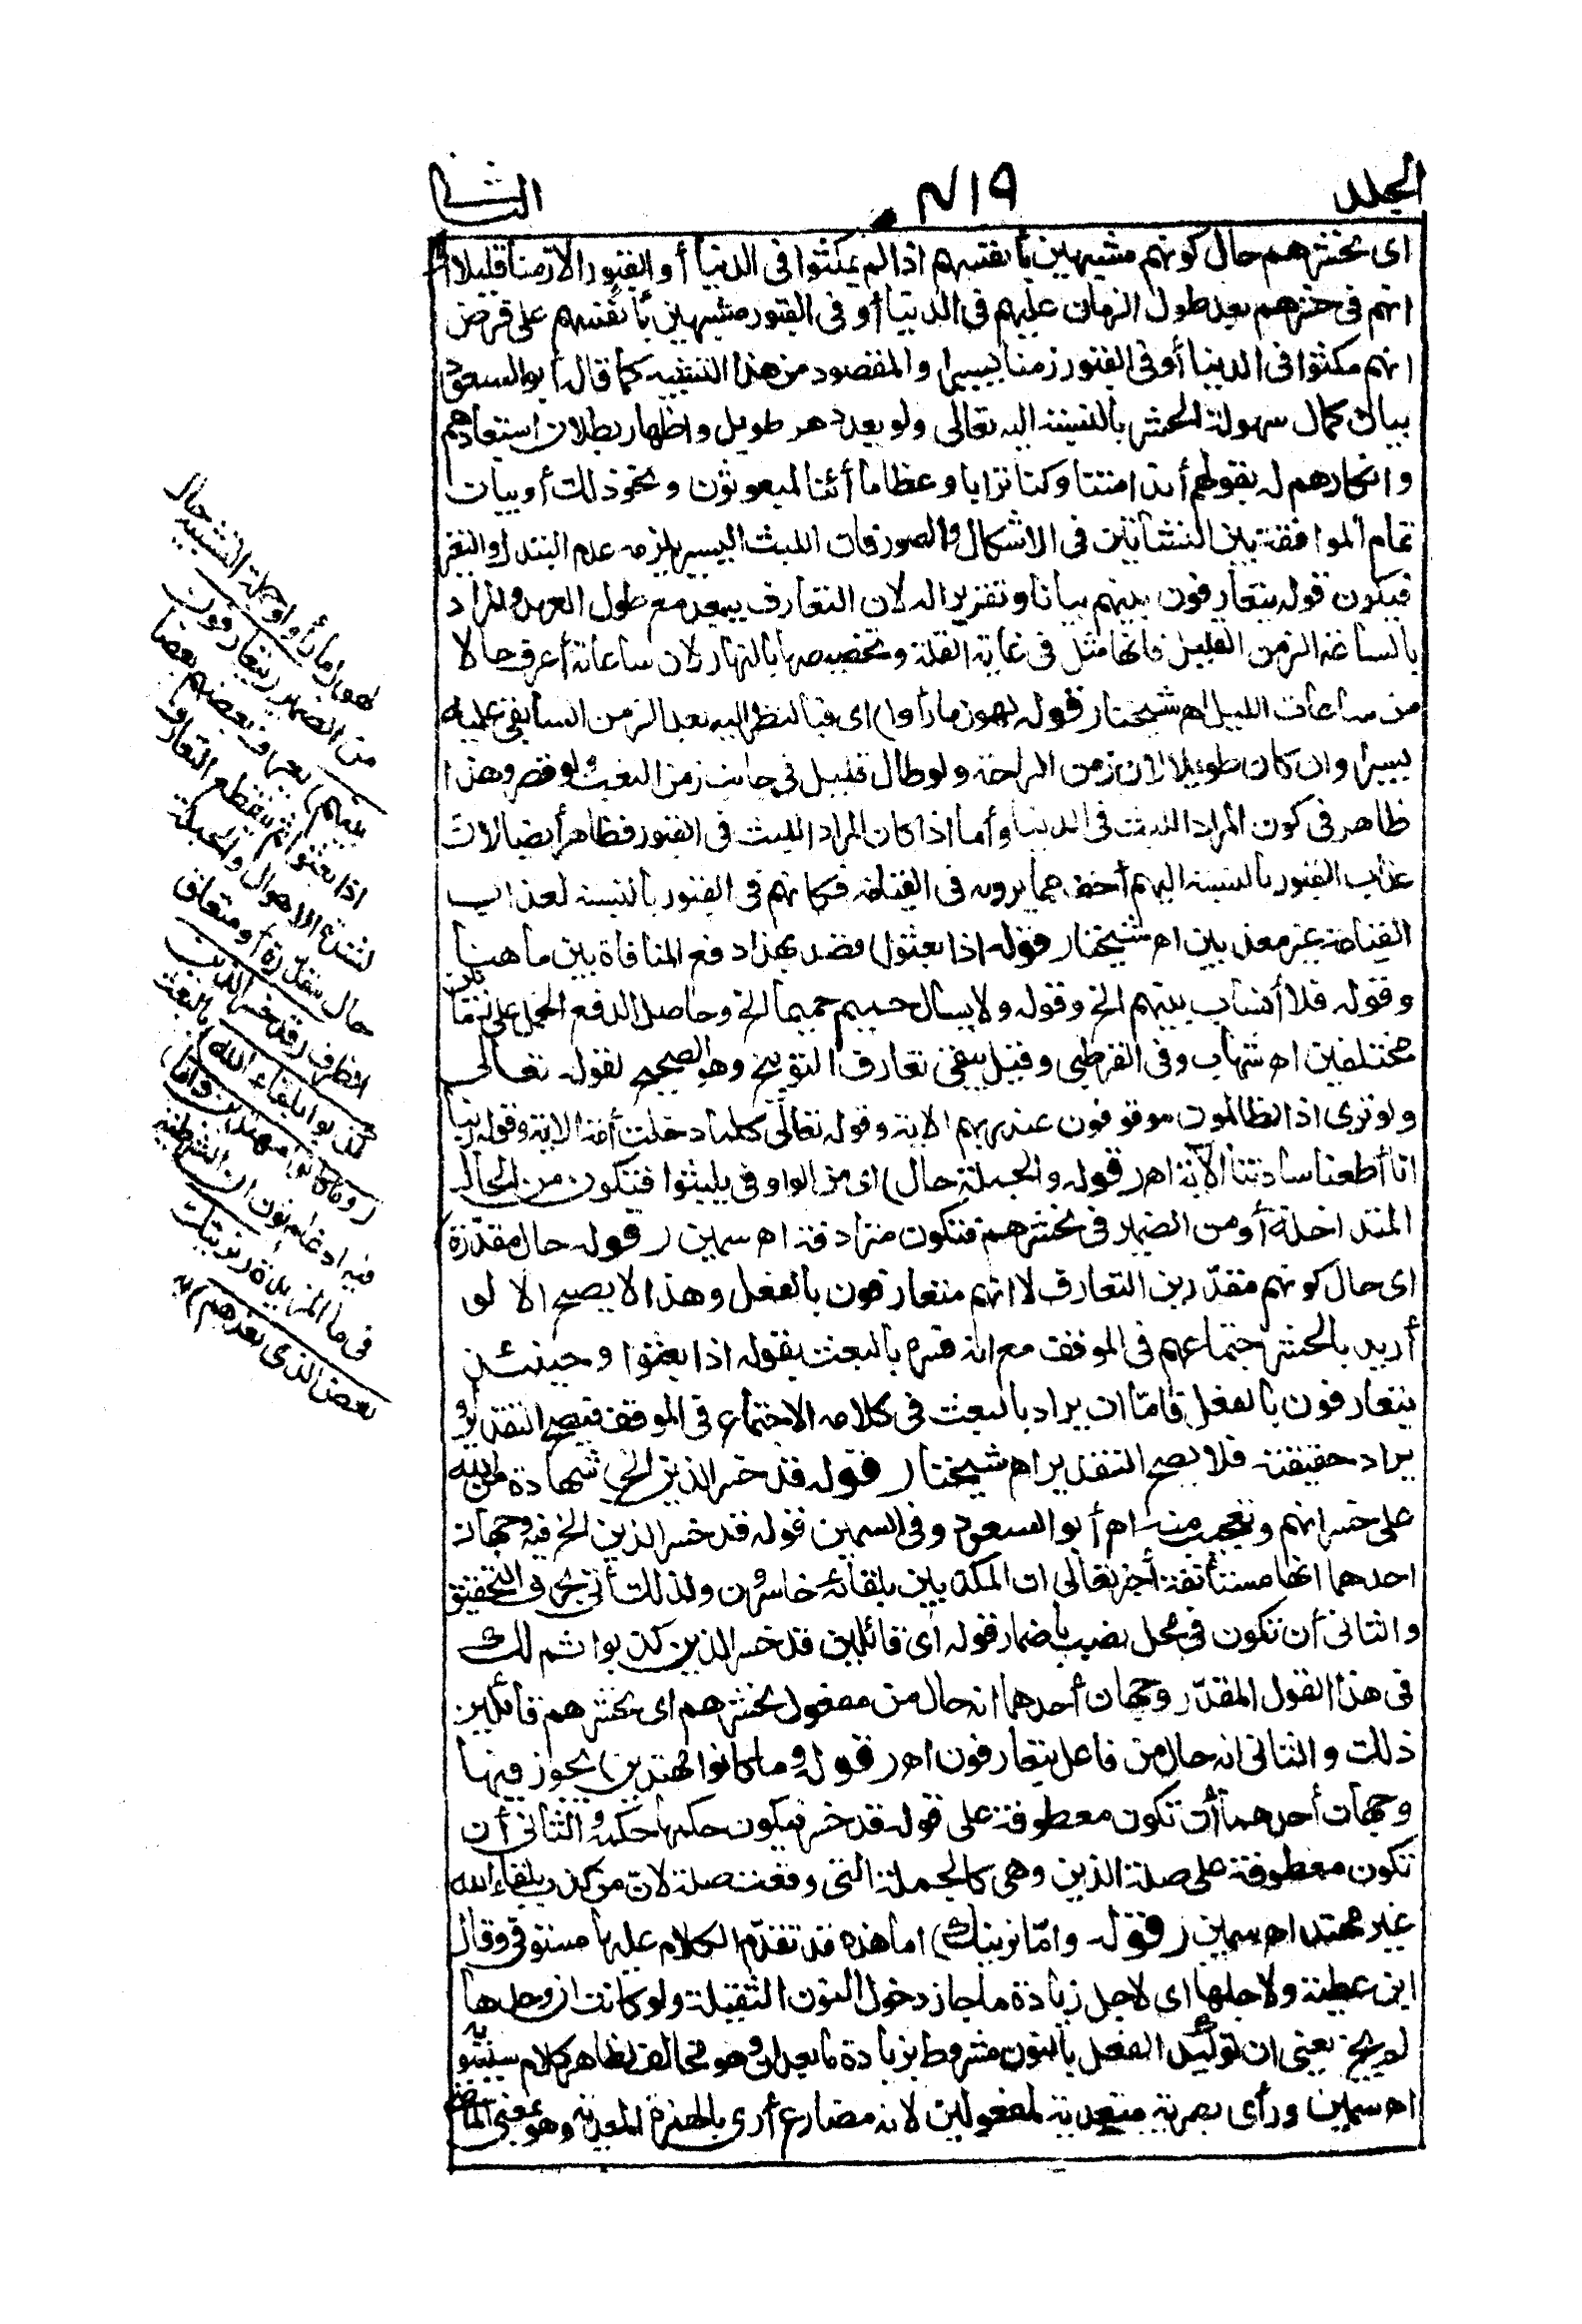 المجلد
٤١٩
الثاني
اى نحشرهم حال كونهم مشبهين بأنفسهم اذا لم يمكثوا فى الدنيا أو القبور الا زمنا قليلا أى
انهم فى حشرهم بعد طول الزمان عليهم فى الدنيا أو فى القبور مشبهين بأنفسهم على فرض
انهم مكثوا فى الدنيا أو فى القبور زمنا يسيرا والمقصود من هذا التشبيه كما قال أبو السعود
بيان كمال سهولة الحشر بالنسبة اليه تعالى ولو بعد دهر طويل واظهار بطلان استبعادهم
وانكارهم له بقولهم أئذا متنا وكنا ترابا وعظاما أئنا لمبعوثون ونحو ذلك أو بيان
تمام الموافقة بين النشأتين فى الاشكال والصور فان اللبث اليسير يلزمه عدم التبدل والتغير
فيكون قوله يتعارفون بينهم بيانا وتقريرا له لان التعارف يبعد مع طول العهد والمراد
بالساعة الزمن القليل فانها مثل فى غاية القلة وتخصيصها بالنهار لان ساعاته أعرف حالا
من ساعات الليل اه شيخنا (قوله لهول ما رأوا) اى فبالنظر اليه يعد الزمن السابق عليه
يسيرا وان كان طويلا لان زمن الراحة ولو طال قليل فى جانب زمن التعب ولو قصر وهذا
ظاهر فى كون المراد اللبث فى الدنيا وأما اذا كان المراد اللبث فى القبور فظاهر أيضا لان
عذاب القبور بالنسبة اليهم أخف مما يرونه فى القيامة فكانهم فى القبور بالنسبة لعذاب
القيامة غير معذبين اه شيخنا (قوله اذا بعثوا) قصد بهذا دفع المنافاة بين ما هنا
وقوله فلا أنساب بينهم الخ وقوله ولا يسأل حميم حميما الخ وحاصل الدفع الحمل على زمانين
مختلفين اه شهاب وفى القرطبى وقيل يبقى تعارف التوبيخ وهو الصحيح لقوله تعالى
ولو ترى اذ الظالمون موقوفون عند ربهم الاية وقوله تعالى كلما دخلت أمة الاية وقوله ربنا
انا أطعنا سادتنا الآية اه (قوله والجملة حال) اى من الواو فى يلبثوا فتكون من الحال
المتداخلة أو من الضمير فى نحشرهم فتكون مترادفة اه سمين (قوله حال مقدّرة)
اى حال كونهم مقدّرين التعارف لا انهم متعارفون بالفعل وهذا لا يصح الا لو
أريد بالحشر اجتماعهم فى الموقف مع انه قسره بالبعث بقوله اذا بعثوا وحينئذ
يتعارفون بالفعل فامّا ان يراد بالبعث فى كلامه الاجتماع فى الموقف فيصح التقدير أو
يراد حقيقته فلا يصح التقدير اه شيخنا (قوله قد خسر الذين الخ) شهادة من الله
على خسرانهم وتعجيب منه اه أبو السعود وفى السمين قوله قد خسر الذين الخ فيه وجهان
احدهما انها مستأنفة أخبر تعالى ان المكذبين بلقائه خاسرون ولذلك أتى بحرف التحقيق
والثانى أن تكون فى محل نصب باضمار قوله اى قائلين قد خسر الذين كذبوا ثم لك
فى هذا القول المقدّر وجهان أحدهما انه حال من مفعول نحشرهم اى نحشرهم قائلين
ذلك والثانى انه حال من فاعل يتعارفون اه (قوله وما كانوا مهتدين) يجوز فيها
وجهان أحدهما أن تكون معطوفة على قوله قد خسر فيكون حكمها حكمه والثانى أن
تكون معطوفة على صلة الذين وهى كالجملة التى وقعت صلة لان من كذب بلقاء الله
غير مهتد اه سمين (قوله وامّا نرينك) اما هذه قد تقدّم الكلام عليها مستوفى وقال
ابن عطية ولاجلها اى لاجل زيادة ما جاز دخول النون الثقيلة ولو كانت ان وحدها
لم يجز يعنى ان توكيد الفعل بالنون مشروط بزيادة ما بعد ان وهو مخالف لظاهر كلام سيبويه
اه سمين ورأى بصرية متعدية لمفعولين لانه مضارع أرى بالهمزة المعدية وهو بمعنى الماضى
لهول ما رأوا وجملة التشبيه حال
من الضمير (يتعارفون
بينهم) يعرف بعضهم بعضا
اذا بعثوا ثم ينقطع التعارف
لشدة الاهوال والجملة
حال مقدّرة أو متعلق
الظرف (قد خسر الذين
كذبوا بلقاء الله) بالبعث
(وما كانوا مهتدين واما)
فيه ادغام نون ان الشرطية
فى ما المزيدة (نرينك
بعض الذى نعدهم) به